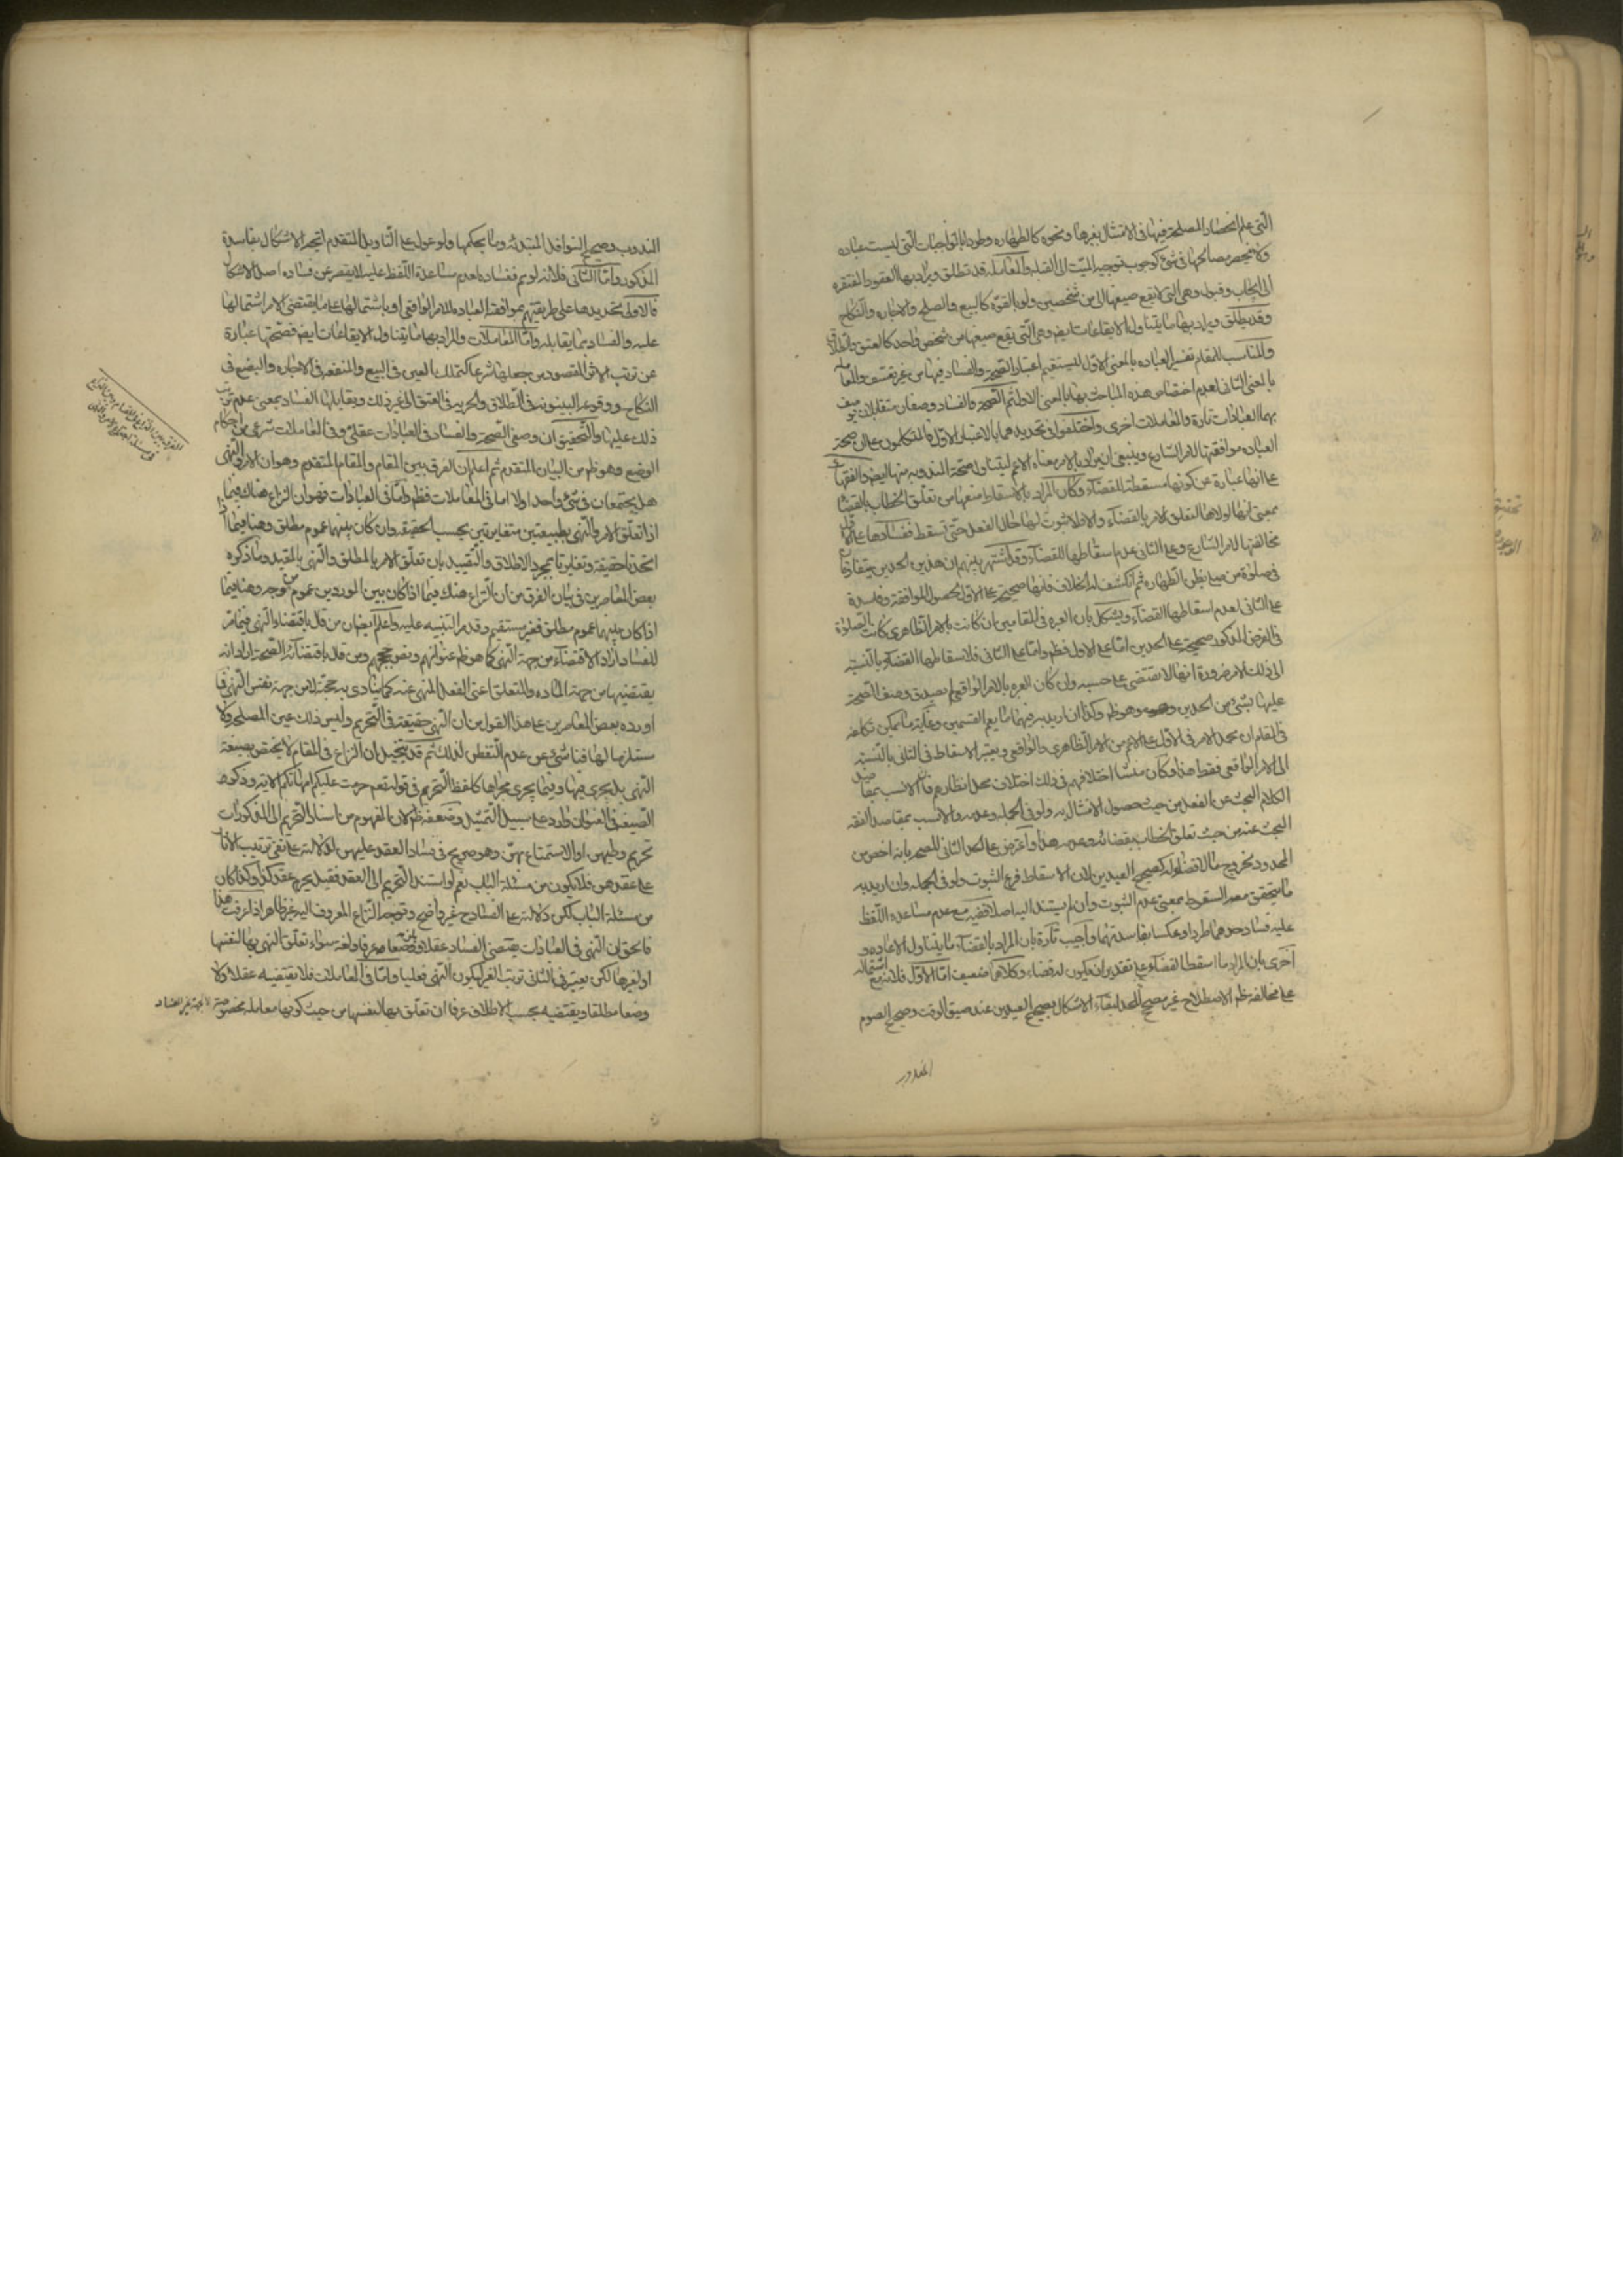 التى علم انحصار المصلحة فيها فى الامتثال بغيرها ونحوه كالطهاره وطودا بالواجبات التى ليست عباده
ولا ينحصر مصالحها فى شئ كوجوب توجيه الميت الى القبله والمعامله قد تطلق ويراد بها العقود المفتقره
الى ايجاب وقبول وهى التى لا يقع صيغها الا من شخصين ولو بالقوة كالبيع والصلح والاجاره والنكاح
وقد يطلق ويراد بها ما يتناول الايقاعات ايض وهى التى يقع صيغها من شخص واحد كالعتق والطلاق
والمناسب للمقام تفسير العباده بالمعنى الاول ليستقيم اعتبار الصحة والفساد فيها من غير تعسف والمعامله
بالمعنى الثانى لعدم اختصاص هذه المباحث بها بالمعنى الاول ثم الصحة والفساد وصفان متقابلان يوصف
بهما العبادات تارة والمعاملات اخرى واختلفوا فى تحديدهما بالاعتبار الاول فالمتكلمون على ان صحة
العباده موافقتها لامر الشارع وينبغى ان يراد بالامر معناه الاعم ليتناول صحة المندوبه منها ايض والفقهاء
على انها عبارة عن كونها مسقطة للقضاء وكان المراد بالاسقاط منعها من تعلق الخطاب بالقضاء
بمعنى انها لولاها لتعلق الامر بالقضاء والا فلا ثبوت لها حال الفعل حتى تسقط ففسادها على الاول
مخالفتها لامر الشارع وعلى الثانى عدم اسقاطها للقضاء وقد اشتهر بينهم ان هذين الحدين يتفارقان
فى صلوة من صلى بظن الطهاره ثم انكشف له الخلاف فانها صحيحة على الاول لحصول الموافقة وفاسدة
على الثانى لعدم اسقاطها القضاء ويشكل بان العبره فى المقامين ان كانت بالامر الظاهرى كانت الصلوة
فى الفرض المذكور صحيحة على الحدين اما على الاول فظ واما على الثانى فلاسقاطها القضاء بالنسبة
الى ذلك الامر ضرورة انها لا تقتضى على حسبه وان كان العبره بالامر الواقعى لم يصدق وصف الصحة
عليها بشئ من الحدين وهو ظ وكذا ان اريد به فيهما ما يعم القسمين وغاية ما يمكن تكلفه
فى المقام ان يحمل الامر فى الاول على الاعم من الامر الظاهرى والواقعى ويعتبر الاسقاط فى الثانى بالنسبة
الى الامر الواقعى فقط هذا وكان منشا اختلافهم فى ذلك اختلاف محل انظارهم فان الانسب بمقاصد
الكلام البحث عن الفعل من حيث حصول الامتثال به ولو فى الجمله وعدمه والانسب بمقاصد الفقه
البحث عنه من حيث تعلق الخطاب بقضائه وعدمه هذا واعترض على الحد الثانى للصحه بانه اخص من
المحدود لخروج ما لا قضاء له كصحيح العيدين لان الاسقاط فرع الثبوت ولو فى الجمله وان اريد به
ما يتحقق معه السقوط بمعنى عدم الثبوت وان لم يستند اليه اصلا ففيه مع عدم مساعده اللفظ
عليه فساد حدهما طردا وعكسا بفاسدتهما واجيب تارة بان المراد بالقضاء ما يتناول الاعاده و
اخرى بان المراد ما اسقط القضاء على تقدير ان يكون له قضاء وكلاهما ضعيف اما الاول فلانه مع اشتماله
على مخالفة ظم الاصطلاح غير مصحح للحد لبقاء الاشكال بصحيح العيدين عند ضيق الوقت وصحيح الصوم
المندوب
المندوب وصحيح النوافل المبتدئه وما بحكمها ولو عول على التاويل المتقدم اتجه الاشكال بفاسدة
المذكور واما الثانى فلانه لو تم ففساده لعدم مساعدة اللفظ عليه لا يقصر عن فساده اصل الاشكال
فالاولى تحديدها على طريقتهم بموافقة العباده للامر الواقعى او باشتمالها على ما يقتضى الامر اشتمالها
عليه والفساد بما يقابله واما المعاملات والمراد بها ما يتناول الايقاعات ايض فصحتها عبارة
عن ترتب الاثر المقصود من جعلها شرعا كتملك العين فى البيع والمنفعه فى الاجاره والبضع فى
النكاح ووقوع البينونه فى الطلاق والحريه فى العتق الى غير ذلك ويقابلها الفساد بمعنى عدم ترتب
ذلك عليها والتحقيق ان وصفى الصحة والفساد فى العبادات عقلى وفى المعاملات شرعى من احكام
الوضع وهو ظم من البيان المتقدم ثم اعلم ان الفرق بين المقام والمقام المتقدم وهو ان الامر والنهى
هل يجتمعان فى شئ واحد او لا اما فى المعاملات فظم واما فى العبادات فهو ان النزاع هناك فيما
اذا تعلق الامر والنهى بطبيعتين متغايرتين بحسب الحقيقه وان كان بينهما عموم مطلق وهنا فيما اذا
اتحدتا حقيقة وتغايرتا بمجرد الاطلاق والتقييد بان تعلق الامر بالمطلق والنهى بالمقيد وما ذكره
بعض المعاصرين فى بيان الفرق من ان النزاع هناك فيما اذا كان بين الموردين عموم من وجه وهنا فيما
اذا كان بينهما عموم مطلق فغير مستقيم وقد مر التنبيه عليه واعلم ايض ان من قال باقتضاء النهى فيما مر
للفساد اراد الاقتضاء من جهة النهى كما هو ظم عنوانهم ونص حججهم ومن قال باقتضائه الصحة اراد انه
يقتضيها من جهة الماده والمتعلق اعنى الفعل المنهى عنه كما ينادى به حجته لا من جهة نفس النهى فما
اورده بعض المعاصرين على هذا القول من ان النهى حقيقة فى التحريم وليس ذلك عين المصلحه ولا
مستلزما لها فناشئ عن عدم التفطن لذلك ثم قد يتخيل ان النزاع فى المقام لا يختص بصيغة
النهى بل يجرى فيها وفيما يجرى مجراها كلفظ التحريم فى قوله تعم حرمت عليكم امهاتكم الايه وذكره
الصيغة فى العنوان وارد على سبيل التمثيل وضعفه ظم لان المفهوم من اسناد التحريم الى المذكورات
تحريم وطيهن او الاستمتاع بهن وهو صريح فى فساد العقد عليهن لدلالته على نفى ترتيب الاثار
على عقدهن فلا يكون من مسئلة الباب نعم لو استند التحريم الى العقد فقيل يحرم عقد كذا وكذا كان
من مسئلة الباب لكن دلالته على الفساد ح غير واضح وتوجه النزاع المعروف اليه غير ظاهر اذا عرفت هذا
فالحق ان النهى فى العبادات يقتضى الفساد عقلا وعرفا ولغة سواء تعلق النهى بها لنفسها
او لغيرها لكن يعتبر فى الثانى ترتب الغير ليكون النهى فعليا واما فى المعاملات فلا يقتضيه عقلا ولا
وضعا مطلقا ويقتضيه بحسب الاطلاق عرفا ان تعلق بها لنفسها من حيث كونها معامله مخصوصة لا لجهة غير الفساد